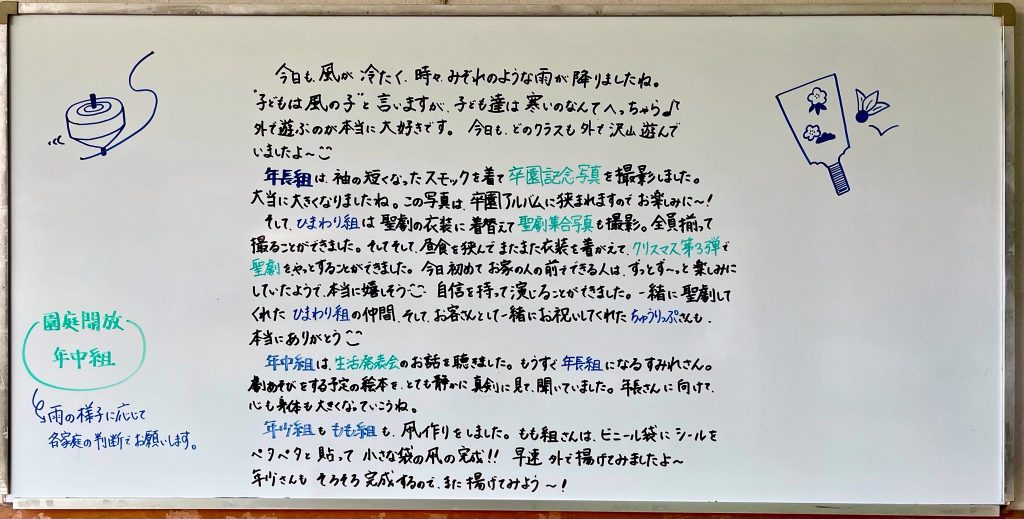 今日も、風が冷たく、時々みぞれのような雨が降りましたね。
"子どもは風の子"と言いますが、子ども達は寒いのなんてへっちゃら♪
外で遊ぶのが本当に大好きです。今日も、どのクラスも外で沢山遊んで
いましたよ〜
年長組は、袖の短くなったスモックを着て卒園記念写真を撮影しました。
大当に大きくなりましたね。この写真は、卒園アルバムに狭まれますのでお楽しみに〜!
そして、ひまわり組は聖劇の衣装に着替えて聖劇集合写真も撮影。全員揃って
撮ることができました。そしてそして、昼食を狭んでまたまた衣装を着がえて、クリスマス第3弾で
聖劇をやっとすることができました。今日初めてお家の人の前でできる人は、ずっとず〜っと楽しみに
していたようで、本当に嬉しそう 自信を持って演じることができました。一緒に聖劇して
くれたひまわり組の仲間、そして、お客さんとして一緒にお祝いしてくれたちゅうりっぷさんも、
本当にありがとう
年中組は、生活発表会のお話を聴きました。もうすぐ年長組になるすみれさん。
劇あそびをする予定の絵本を、とても静かに真剣に見て、聞いていました。年長さんに向けて、
心も身体も大きくなっていこうね。
年少組ももも組も、凧作りをしました。もも組さんは、ビニール袋にシールを
ペタペタと貼って小さな袋の凧の完成!!早速外で揚げてみましたよ〜
年少さんもそろそろ完成するので、また揚げてみよう〜!
園庭開放
年中組
雨の様子に応じて
各家庭の判断でお願いします。